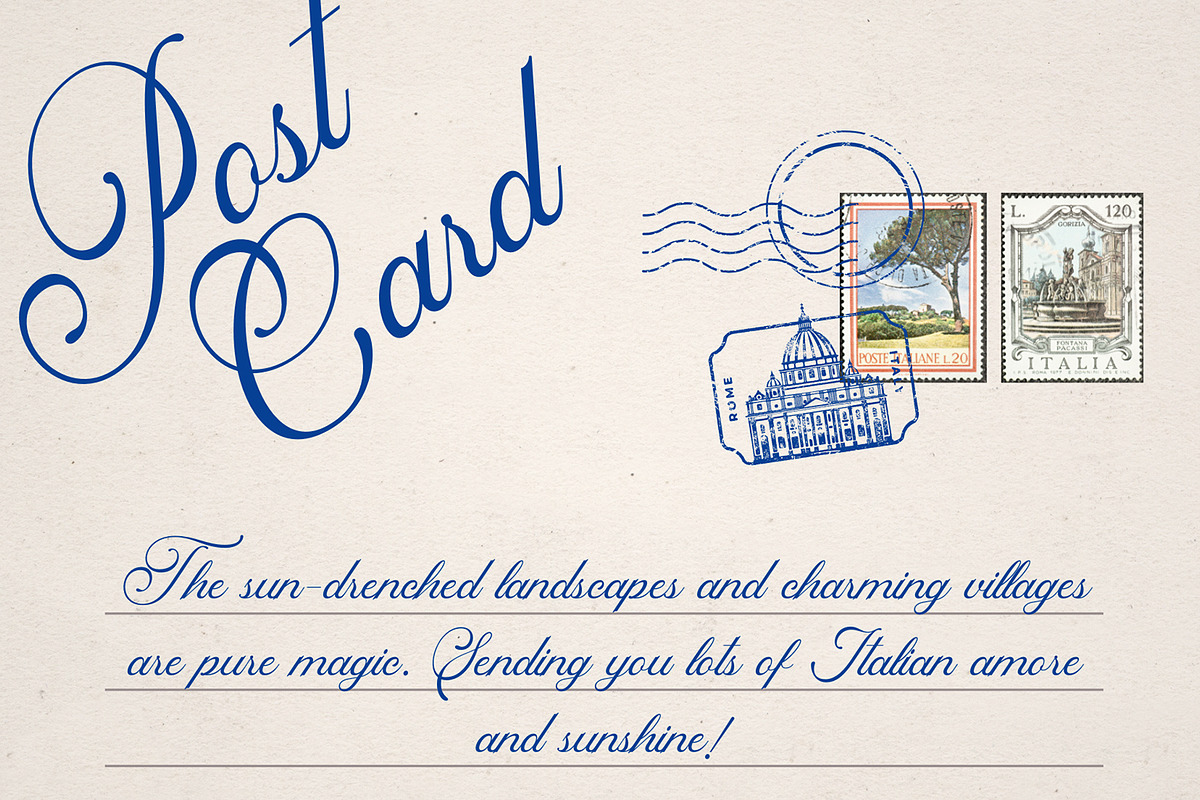 Post
Card
POSTE ITALIANE L.20
L. 120
GORIZIA
FONTANA
PACASSI
ITALIA
ROME
ITALY
The sun-drenched landscapes and charming villages
are pure magic. Sending you lots of Italian amore
and sunshine!